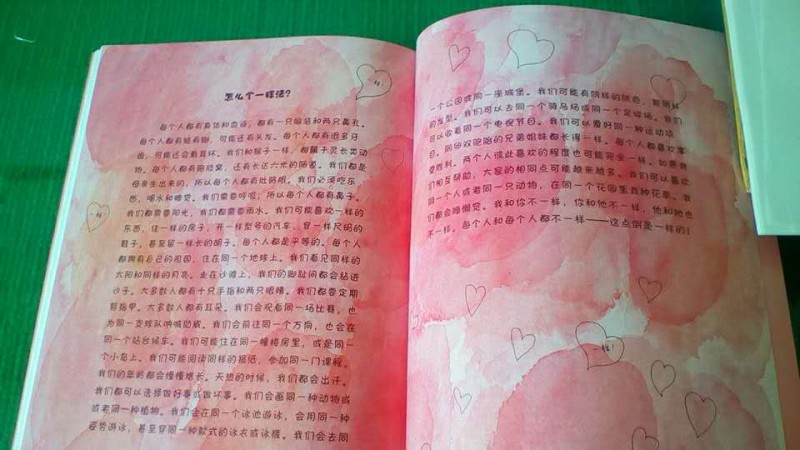 怎么个一样法?
每个人都有身体和血液,都有一只嘴巴和两只鼻孔。
每个人都有雄有脚,可能还有头发。每个人都有很多牙
齿,可能还会戴耳环。我们和猴子一样,都属于灵长类动
物。每个人都有胳肢窝,还有长达六米的肠道。我们都是
母亲生出来的,所以每个人都有肚脐眼。我们必须吃东
西,喝水和睡觉。我们需要呼吸,所以每个人都有鼻子。
我们都需要阳光,我们都需要雨水。我们可能喜欢一样的
东西,住一样的房子,开一样型号的汽车,穿一样尺码的
鞋子,甚至留一样长的胡子。每个人都是平等的。每个人
都拥有自己的祖国,住在同一个地球上。我们看见同样的
太阳和同样的月亮。走在沙滩上,我们的脚趾间都会钻进
沙子。大多数人都有十只手指和两只眼睛。我们都要定期
剪指甲。大多数人都有耳朵。我们会观看同一场比赛,也
为同一支球队呐喊助威。我们会前往同一个方向,也会在
同一个站台候车。我们可能住在同一幢楼房里,或是同一
个小岛上。我们可能阅读同样的报纸,参加同一门课程。
我们的年龄都会慢慢增长。天热的时候,我们都会出汗。
我们都可以选择做好事或做坏事。我们会画同一种动物或
或者同一种植物。我们会在同一个泳池游泳,会用同一种
姿势游泳,甚至穿同一种款式的泳衣或泳裤。我们会去同
一个公园或同一座城堡。我们可能有同样的肤色,剪同样
的发型。我们可以去同一个骑马场或同一个足球场。我们
可以收看同一个电视节目。我们可以爱好同一种运动项
目。同卵双胞胎的兄弟姐妹都长得一样。每个人都喜欢享
受胜利。两个人彼此喜欢的程度也可能完全一样。如果我
们相互帮助,大家的相同点可能越来越多。我们可以喜欢
同一个人或者同一只动物,在同一个花园里栽种花草。我
们都会睡懒觉。我和你不一样,你和他不一样,他和她也
不一样。每个人和每个人都不一样——这点倒是一样的!
一样!
一样!
一样!